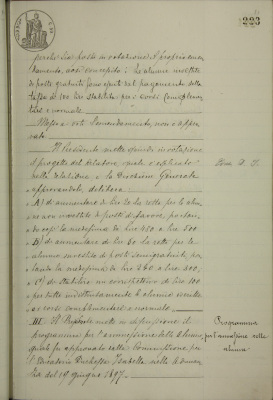 223
perchè sia posto in votazione il proprio emen-
damento, così concepito: "Le alunne investite
di posti gratuiti sono esenti dal pagamento della
tassa di lire 100 stabilita per i corsi complemen-
tari e normale.
Messo a voti l'emendamento, non è appro-
vato.
Il Presidente mette quindi in votazione
il progetto del Relatore, quale è esplicato
nella relazione e la Direzione Generale
approvandolo, delibera:
A) di aumentare di lire la retta per le alun-
ne non investite di posti di favore, portan-
do così la medesima da lire 450 a lire 500.
B) di aumentare di lire 40 la retta per le
alunne investite di posti semigratuiti, por-
tando la medesima da lire 260 a lire 300.
C) di stabilire un contributo di lire 100
per tutte indistintamente le alunne iscritte
ai corsi complementare e normale.
III. Il Presidente mette in discussione il
programma per l'ammissione delle alunne,
quale fu approvato dalla Commissione per
l'Educatorio Duchessa Isabella nella adunan-
za del 19 giugno 1897.
Programma
per l'ammissione delle
alunne